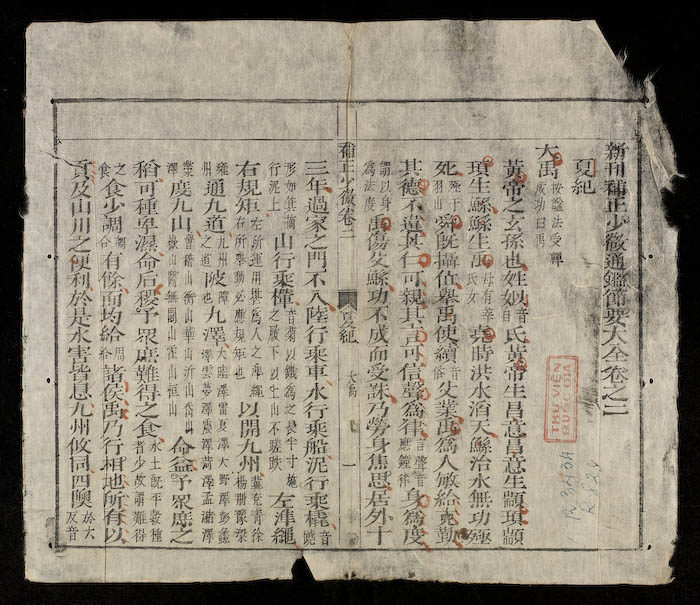 新刊補正少微通鑑節要大全卷之二
夏紀
大禹按諡法受禪成功曰禹
黃帝之玄孫也姓姒音似氏黃帝生昌意昌意生顓頊顓
頊生鯀鯀生禹母有莘氏女堯時洪水滔天鯀治水無功殛
死殛于羽山舜既攝位舉禹使續音俗父業禹爲人敏給克勤
其德不違其仁可親其言可信聲爲律言聲音應鍾律身爲度
謂以身爲法度禹傷父鯀功不成而受誅乃勞身焦思居外十
補正少微卷二 夏紀 大禹 一
三年過家之門不入陸行乘車水行乘船泥行乘橇音蹺
形如箕擿行泥上山行乘檋音菊以鐵爲之長半寸施之履下以上山不蹉跌左準繩
右規矩左所運用堪爲人之準繩右所舉動必應規矩也以開九州冀兗青徐楊荊豫梁
雍州通九道九州之道陂障也九澤大陸澤雷夏澤大野澤彭蠡澤雲夢澤震澤菏澤孟瀦澤
澤度九山會稽山衡山華山沂山岱山嶽山醫無閭山霍山恒山命益予眾庶之
稻可種卑濕命后稷予眾庶難得之食水土既平教種者少故謂難得
之食食少調有餘而均給諸侯禹乃行相地所有以
貢及山川之便利於是水害皆息九州攸同四隩於六反音
THƯ VIỆN
QUỐC GIA